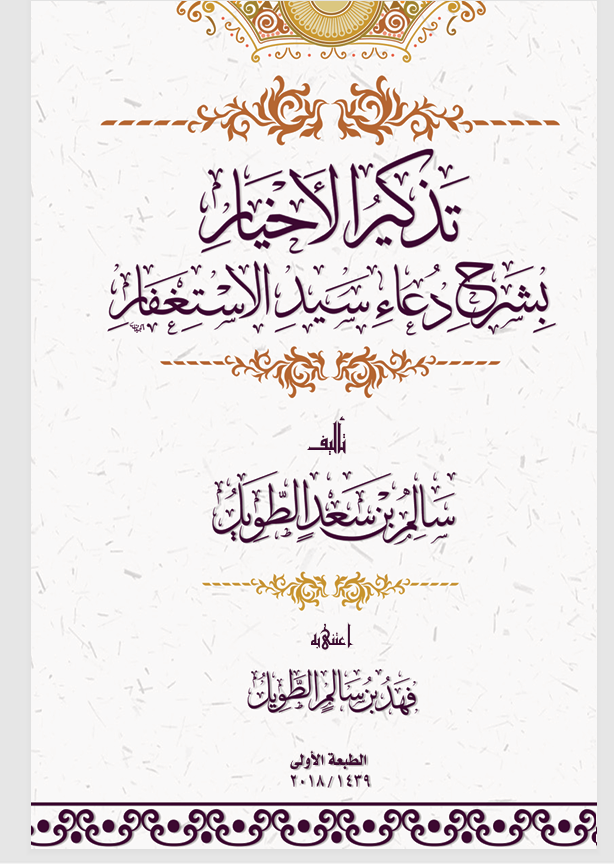 تَذكيرُ الأَخيَارِ
بشَرحِ دُعَاءِ سَيدِ الاستِغفَارِ
تأليف
سَالِمُ بْنُ سَعدٍ الطَّويلُ
اعتنى به
فَهَدُ بنُ سَالمٍ الطَّويلُ
الطبعة الأولى
٢٠١٨/١٤٣٩